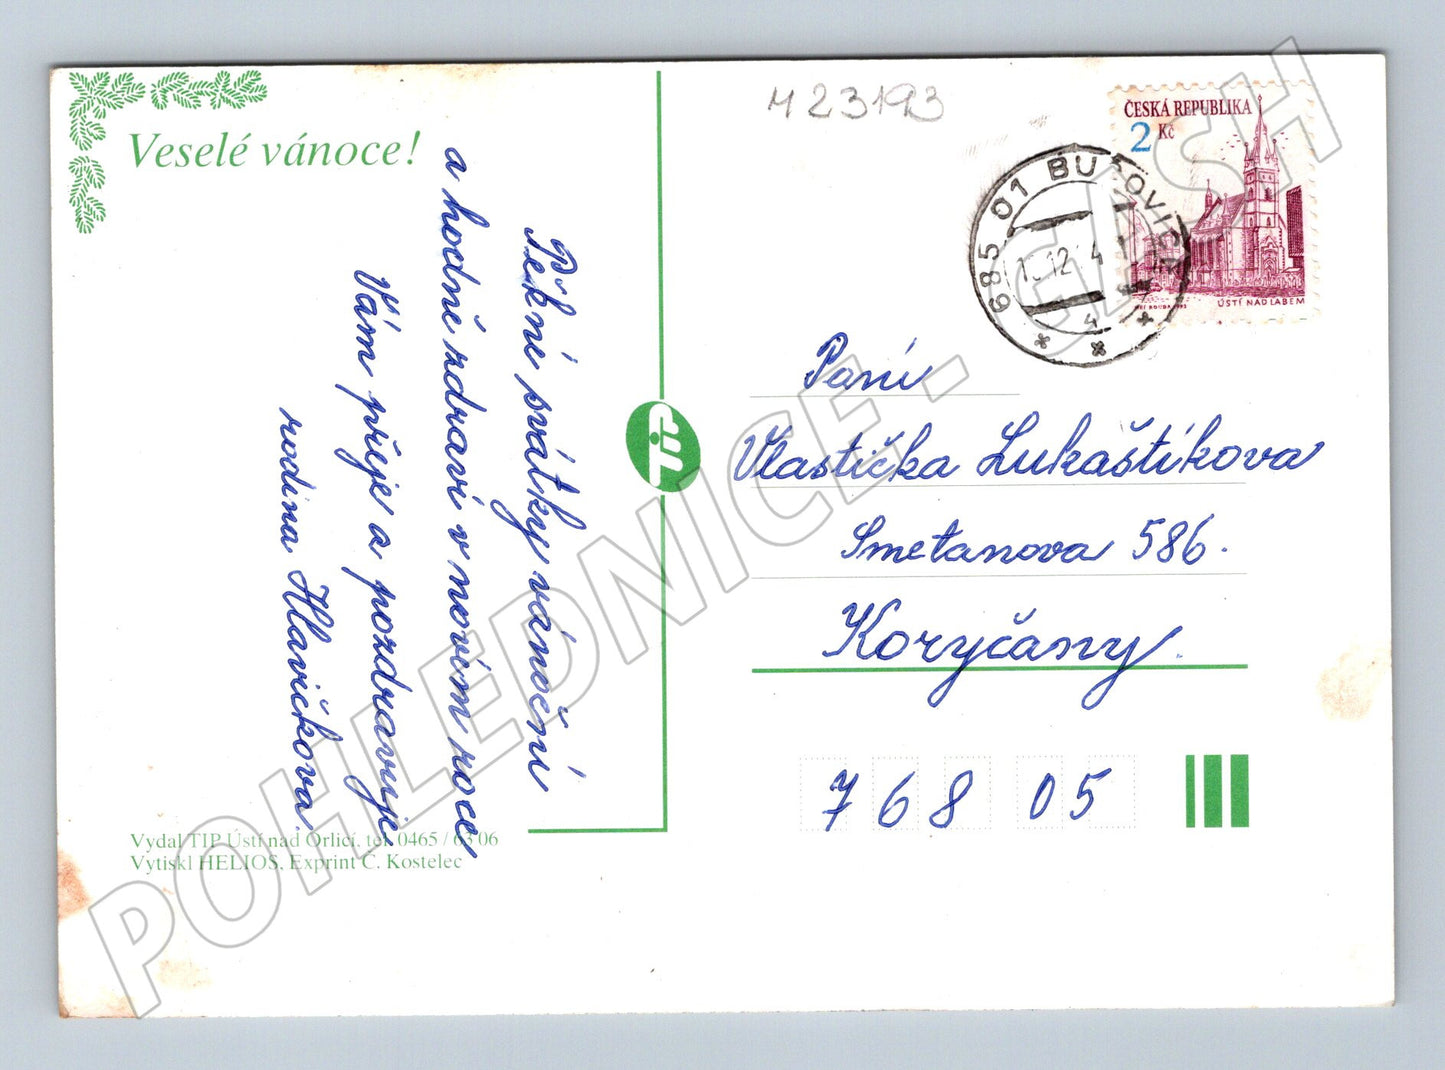 Veselé vánoce!
Pekné svátky vánoční
a hodně zdraví v novém roce
Vám přeje a pozdravuje
rodina Hlavičkova.
Vydal TIP Ústí nad Orlicí, tel. 0465 / 63 06
Vytiskl HELIOS, Exprint Č. Kostelec
M 23193
ČESKÁ REPUBLIKA
2 Kč
ÚSTÍ NAD LABEM
685 01 BUČOVICE
12 4
4
Paní
Vlastička Lukaštíkova
Smetanova 586.
Koryčany.
768 05
POHLEDNICE - CASH